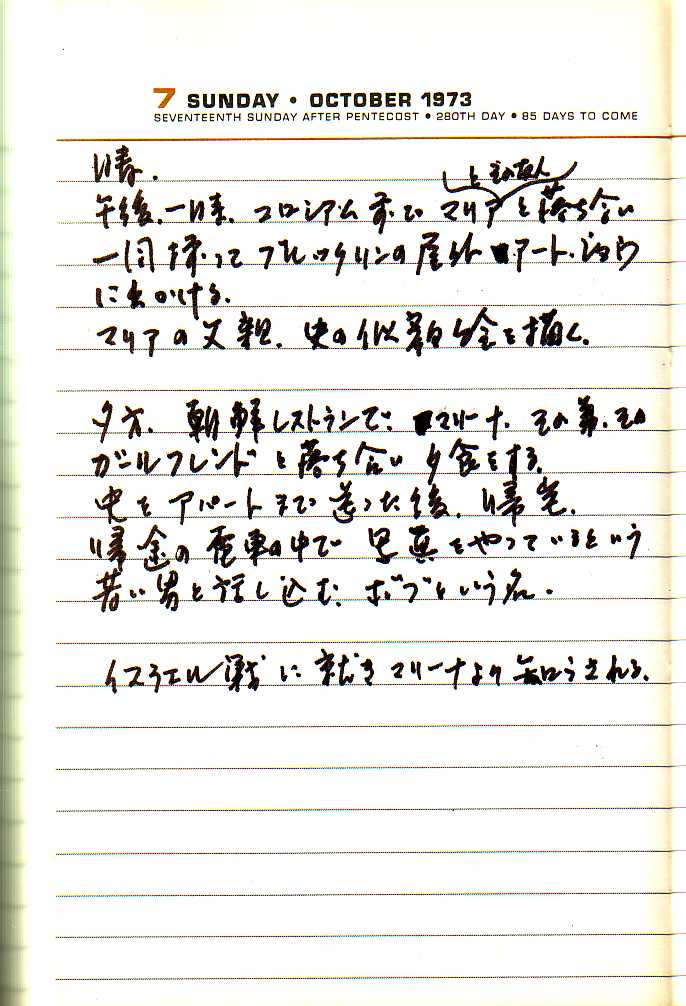 7 SUNDAY • OCTOBER 1973
SEVENTEENTH SUNDAY AFTER PENTECOST • 280TH DAY • 85 DAYS TO COME
晴.
とその友人
午後、一時、コロシアム前でマリアと落ち合い
一同揃ってブルックリンの屋外アート・ショウ
に出かける。
マリアの父親、史の似顔絵を描く。
夕方、朝鮮レストランで、マリーナ、その弟、その
ガールフレンドと落ち合い夕食をする。
史をアパートまで送った後、帰宅。
帰途の電車の中で写真をやっているという
若い男と話し込む。ボブという名.
イスラエル戦に就きマリーナより知らされる。